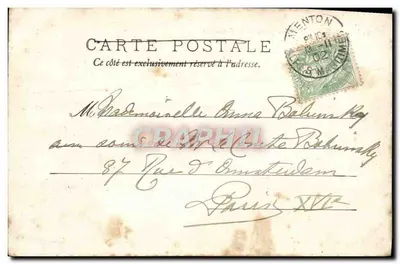 MENTON
CARTE POSTALE
Ce côté est exclusivement réservé à l'adresse.
Mademoiselle Anna Bohunsky
aux soins de Mr le Comte Bohunsky
87 Rue d'Amsterdam
Paris